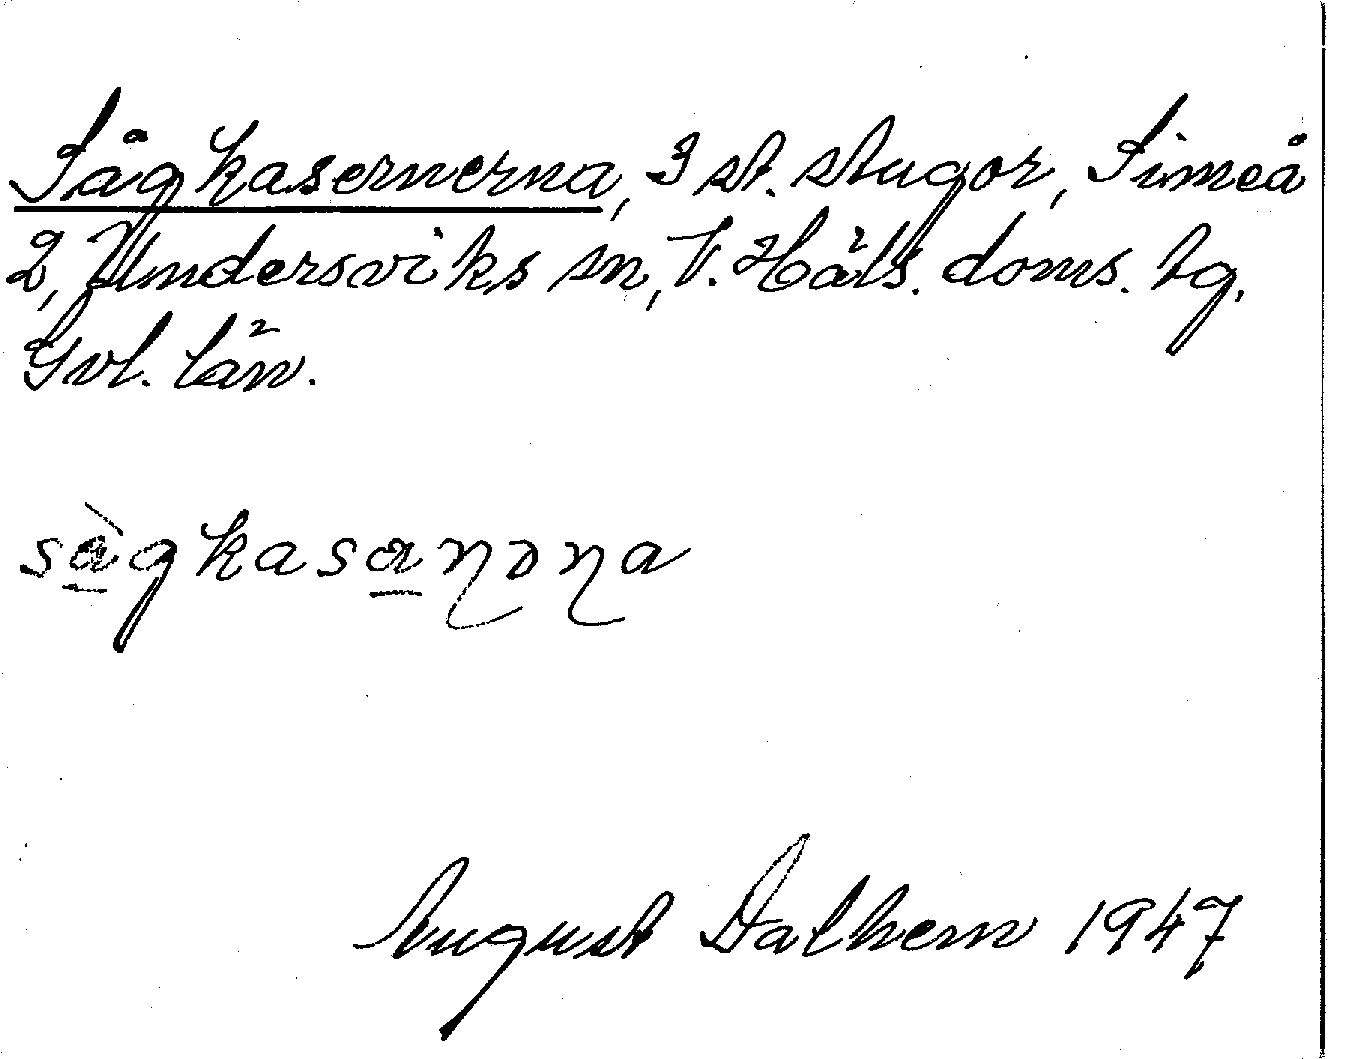 Sågkasernerna, 3 st. stugor, Simeå
2, Undersviks sn, V. Häls. doms. tg.
Gvl. län.
sàgkasaɳəɳa
August Dalhem 1947